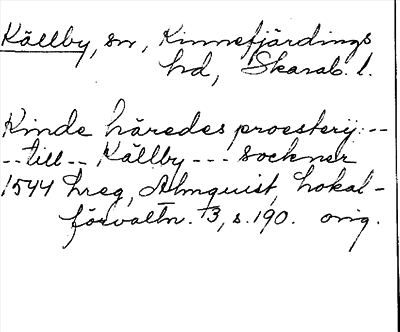 Källby, sn, Kinnefjärdings
hd, Skarab. l.
Kinde häredes proestery: --
-- till -- Källby --- Sockner
1544 hreg, Almquist, Lokal-
förvaltn. 13, s. 190. orig.